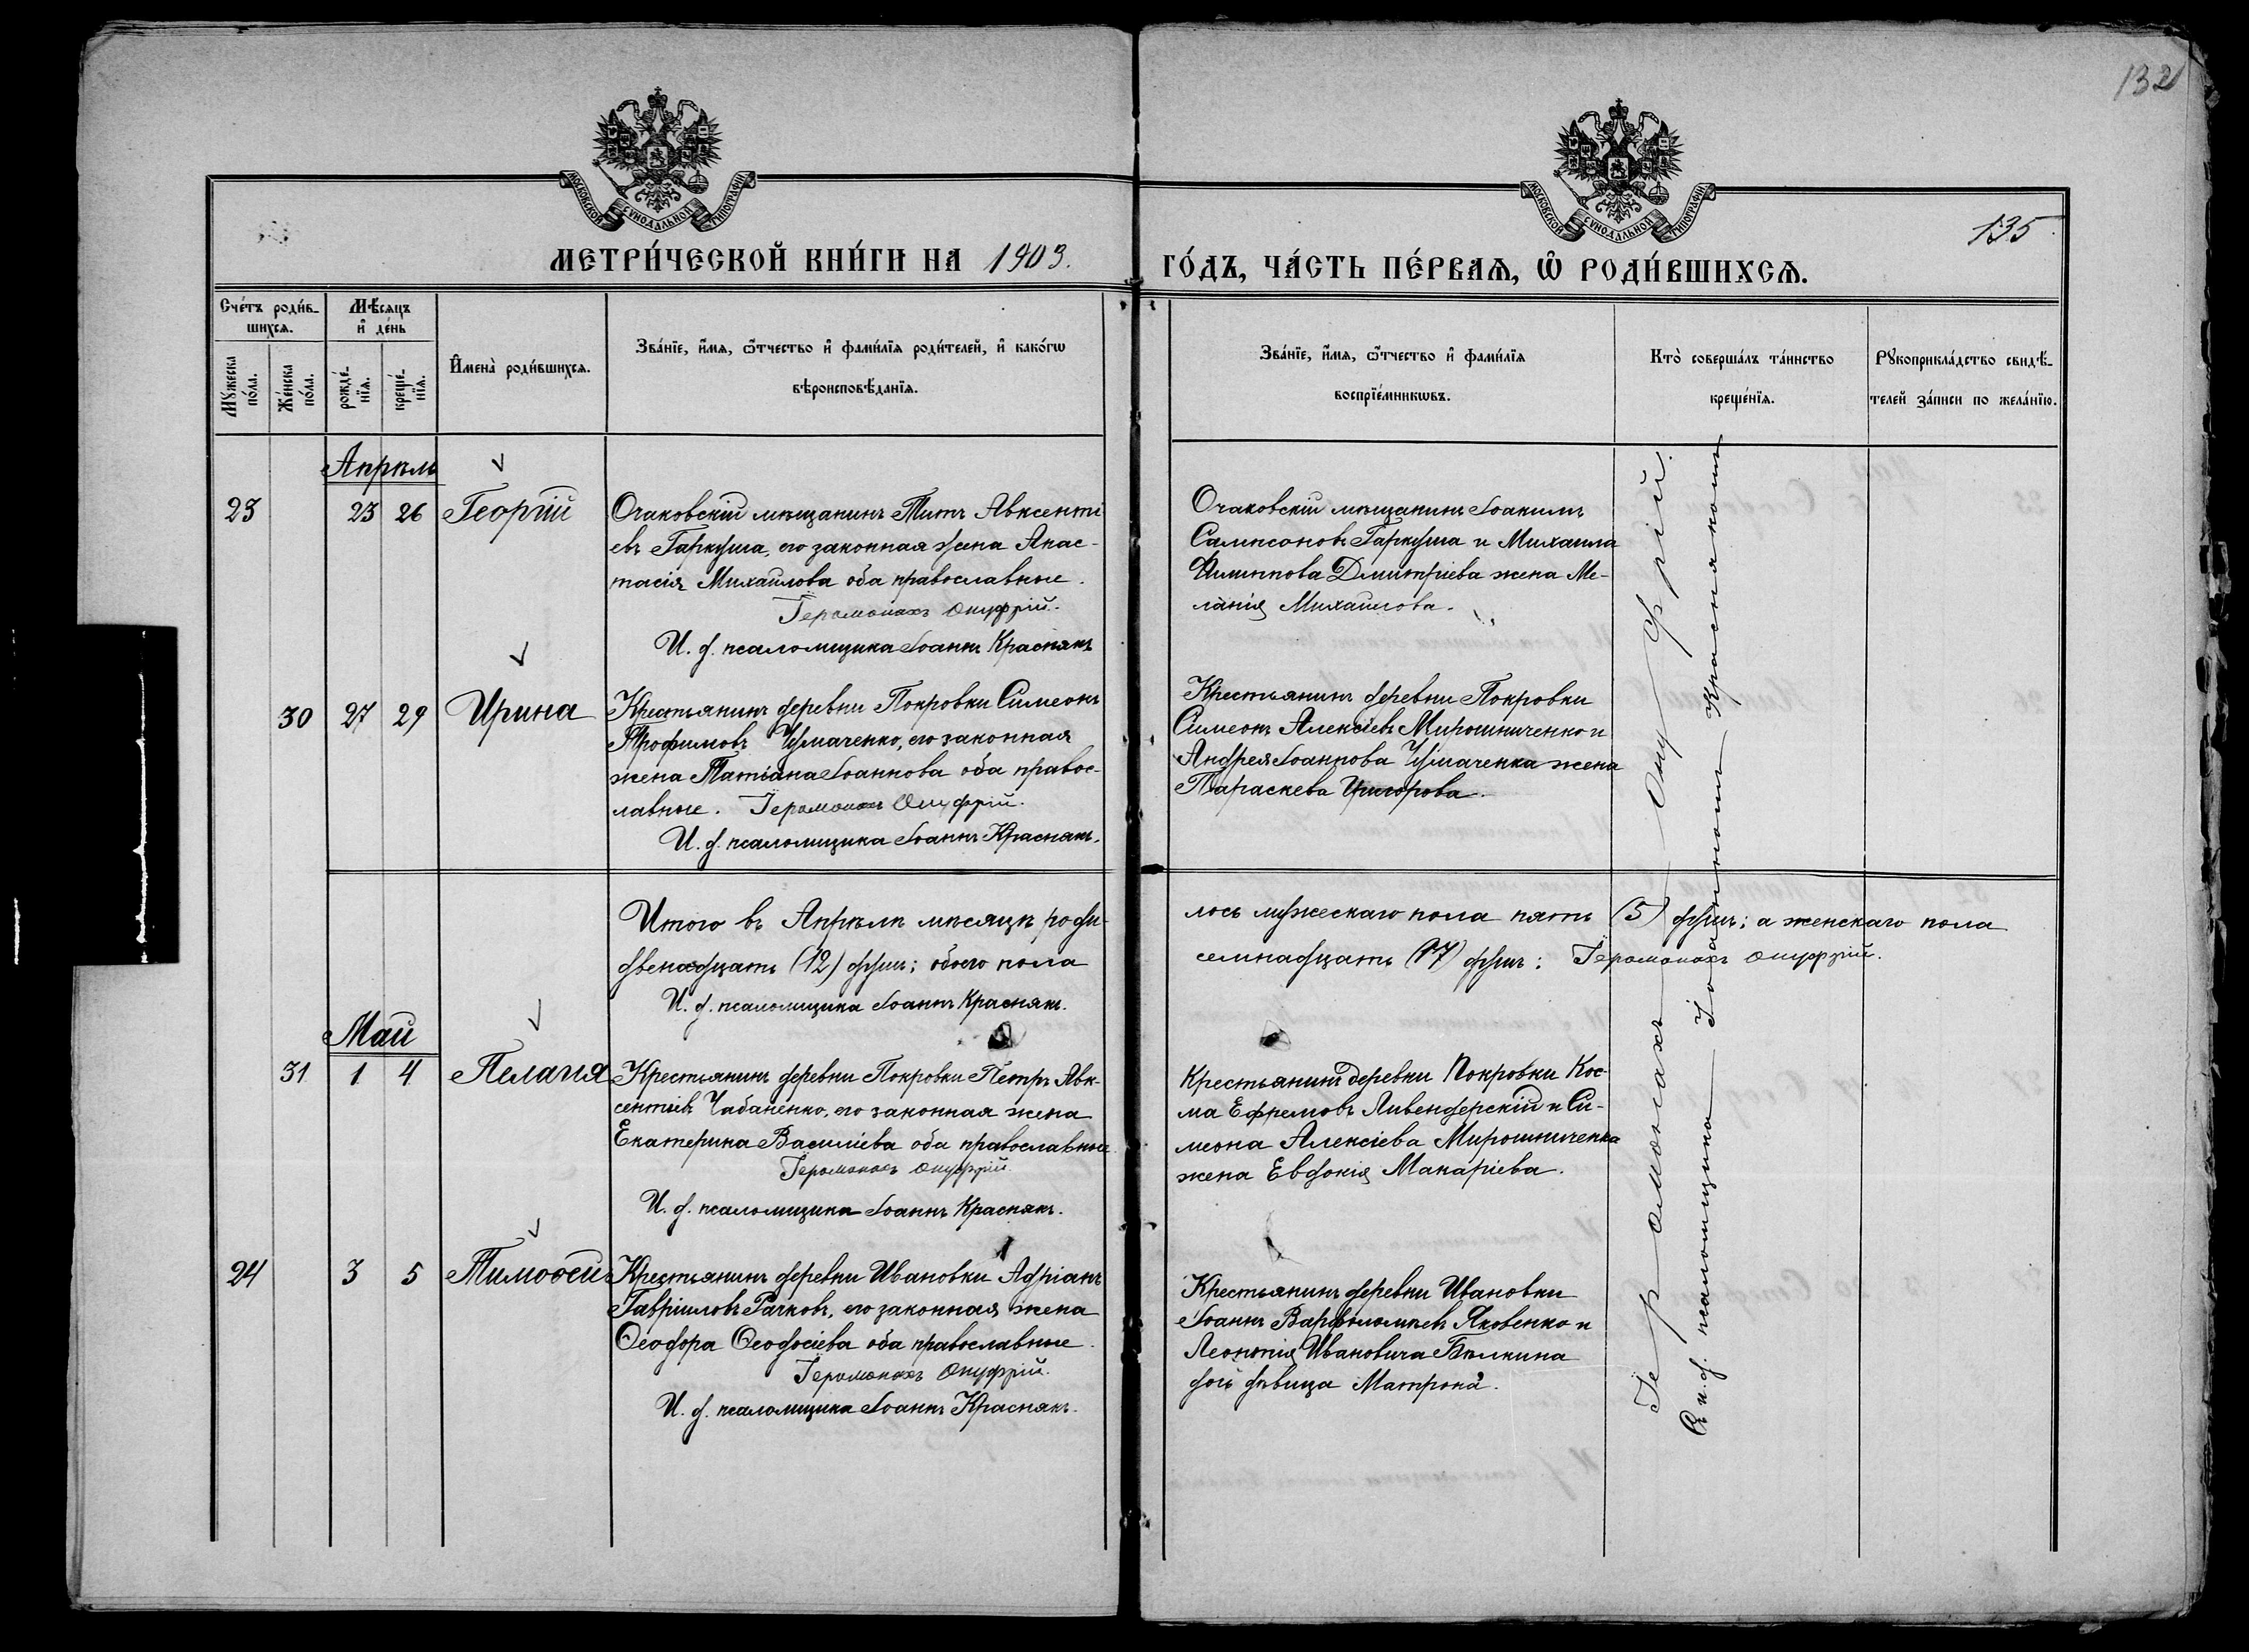 132
МОСКОВСКОЙ СѴНОДАЛЬНОЙ ТИПОГРАФІИ
МОСКОВСКОЙ СѴНОДАЛЬНОЙ ТИПОГРАФІИ
135
МЕТРИ́ЧЕСКОЙ КНИ́ГИ НА 1903.
ГО́ДЪ, ЧА́СТЬ ПЕ́РВАѦ, Ѡ РОДИ́ВШИХСѦ.
Сче́тъ роди́в-
шихсѧ.
Мꙋ́жеска по́ла.
Же́нска по́ла.
Мѣ́сѧцъ
и҆ де́нь
рожде́-
нїѧ.
креще́-
нїѧ.
И҆мена̀ роди́вшихсѧ.
Зва́нїе, и҆́мѧ, ѻ҆́тчество и҆ фами́лїѧ роди́телей, и҆ како́гѡ
вѣроисповѣ́данїѧ.
Зва́нїе, и҆́мѧ, ѻ҆́тчество и҆ фами́лїѧ
воспрїе́мникѡвъ.
Кто̀ соверша́лъ та́инство
креще́нїѧ.
Рꙋкоприкла́дство свидѣ́-
телей за́писи по жела́нїю.
Апрѣль
23 23 26 Георгій
Очаковскій мѣщанинъ Титъ Авксенті
евъ Гаркуша, его законная жена Анас-
тасія Михаилова оба православные.
Іеромонахъ Онуфрій.
И. д. псаломщика Іоаннъ Краснякъ
Очаковскій мѣщанинъ Іоакимъ
Сампсоновъ Гаркуша и Михаила
Филиппова Дмитріева жена Ме-
ланія Михаилова.
30 27 29 Ирина
Крестьянинъ деревни Покровки Симеонъ
Трофимовъ Чумаченко, его законная
жена Татіана Іоаннова оба правос-
лавные. Іеромонахъ Онуфрій.
И. д. псаломщика Іоаннъ Краснякъ.
Крестьянинъ деревни Покровки
Симеонъ Алексіевъ Мирошниченко и
Андрея Іоаннова Чумаченка жена
Параскева Григорова.
Итого въ Апрѣлѣ мѣсяцѣ роди-
лось мужескаго пола пять (5) душъ; а женскаго пола
двенадцать (12) душъ; обоего пола
семнадцать (17) душъ: Іеромонахъ Онуфрій.
И. д. псаломщика Іоаннъ Краснякъ.
Май
31 1 4 Пелагія
Крестьянинъ деревни Покровки Петръ Авк-
сентіевъ Чабаненко, его законная жена
Екатерина Василіева оба православные
Іеромонахъ Онуфрій.
И. д. псаломщика Іоаннъ Краснякъ.
Крестьянинъ деревни Покровки Кос-
ма Ефремовъ Ливендерскій и Си-
меона Алексіева Мирошниченка
жена Евдокія Макаріева.
24 3 5 Тимоѳей
Крестьянинъ деревни Ивановки Адріанъ
Гавріиловъ Рачковъ, его законная жена
Ѳеодора Ѳеодосіева оба православные.
Іеромонахъ Онуфрій.
И. д. псаломщика Іоаннъ Краснякъ.
Крестьянинъ деревни Ивановки
Іоаннъ Варфоломѣевъ Яковенко и
Леонтія Ивановича Бѣлкина
дочь дѣвица Матрона.
Іеромонахъ Онуфрій.
И. д. псаломщика Іоаннъ Краснякъ